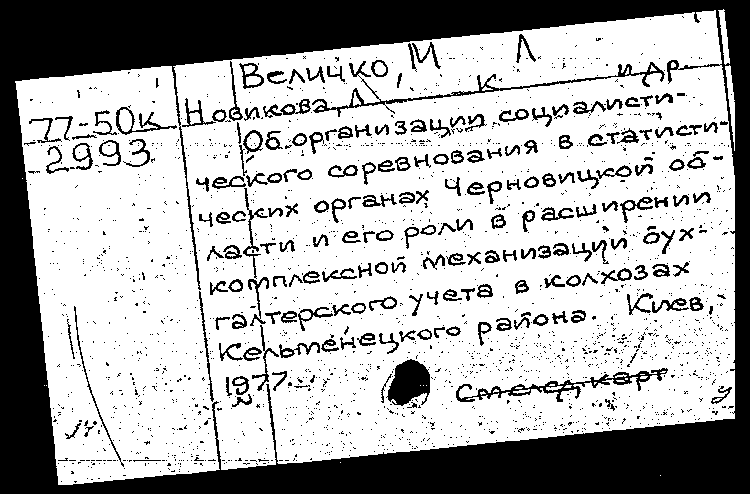 Величко, М Л
Новикова, Л К и др.
77-50к
2993
Об организации социалисти-
ческого соревнования в статисти-
ческих органах Черновицкой об-
ласти и его роли в расширении
комплексной механизации бух-
галтерского учета в колхозах
Кельменецкого района. Киев,
1977.
См след карт